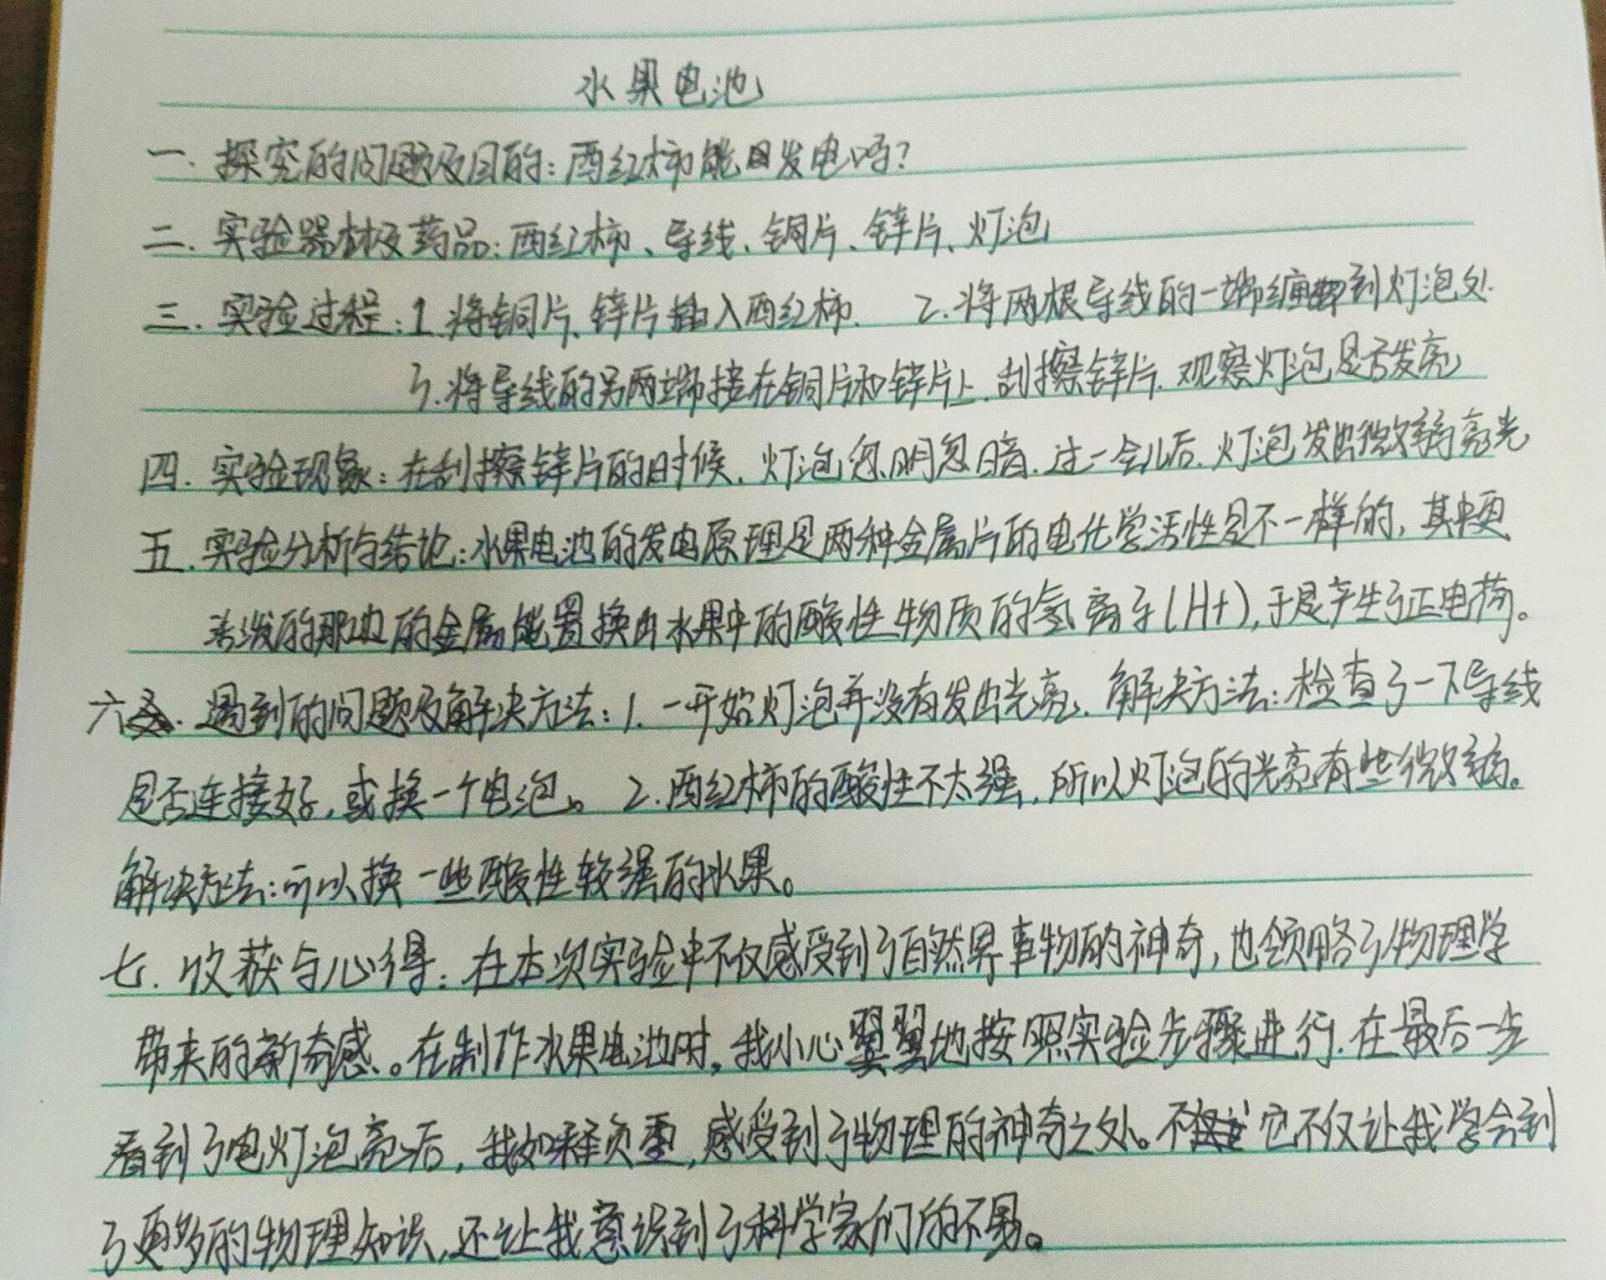 水果电池
一. 探究的问题及目的:西红柿能发电吗?
二. 实验器材及药品:西红柿、导线、铜片、锌片、灯泡
三. 实验过程:1.将铜片、锌片插入西红柿. 2.将两根导线的一端缠到灯泡处.
3.将导线的另两端接在铜片和锌片上.刮擦锌片.观察灯泡是否发亮
四. 实验现象:在刮擦锌片的时候.灯泡忽明忽暗.过一会儿后.灯泡发出微弱亮光
五. 实验分析与结论:水果电池的发电原理是两种金属片的电化学活性是不一样的,其中更
活泼的那边的金属能置换出水果中的酸性物质的氢离子(H+),于是产生了正电荷。
六. 遇到的问题及解决方法:1.一开始灯泡并没有发出光亮.解决方法:检查了一下导线
是否连接好,或换一个电泡。2.西红柿的酸性不太强,所以灯泡的光亮有些微弱。
解决方法:可以换一些酸性较强的水果。
七. 收获与心得:在本次实验中不仅感受到了自然界事物的神奇,也领略了物理学
带来的新奇感。在制作水果电池时,我小心翼翼地按照实验步骤进行.在最后一步
看到了电灯泡亮后,我如释负重,感受到了物理的神奇之处。不 它不仅让我学会到
了更多的物理知识,还让我意识到了科学家们的不易。